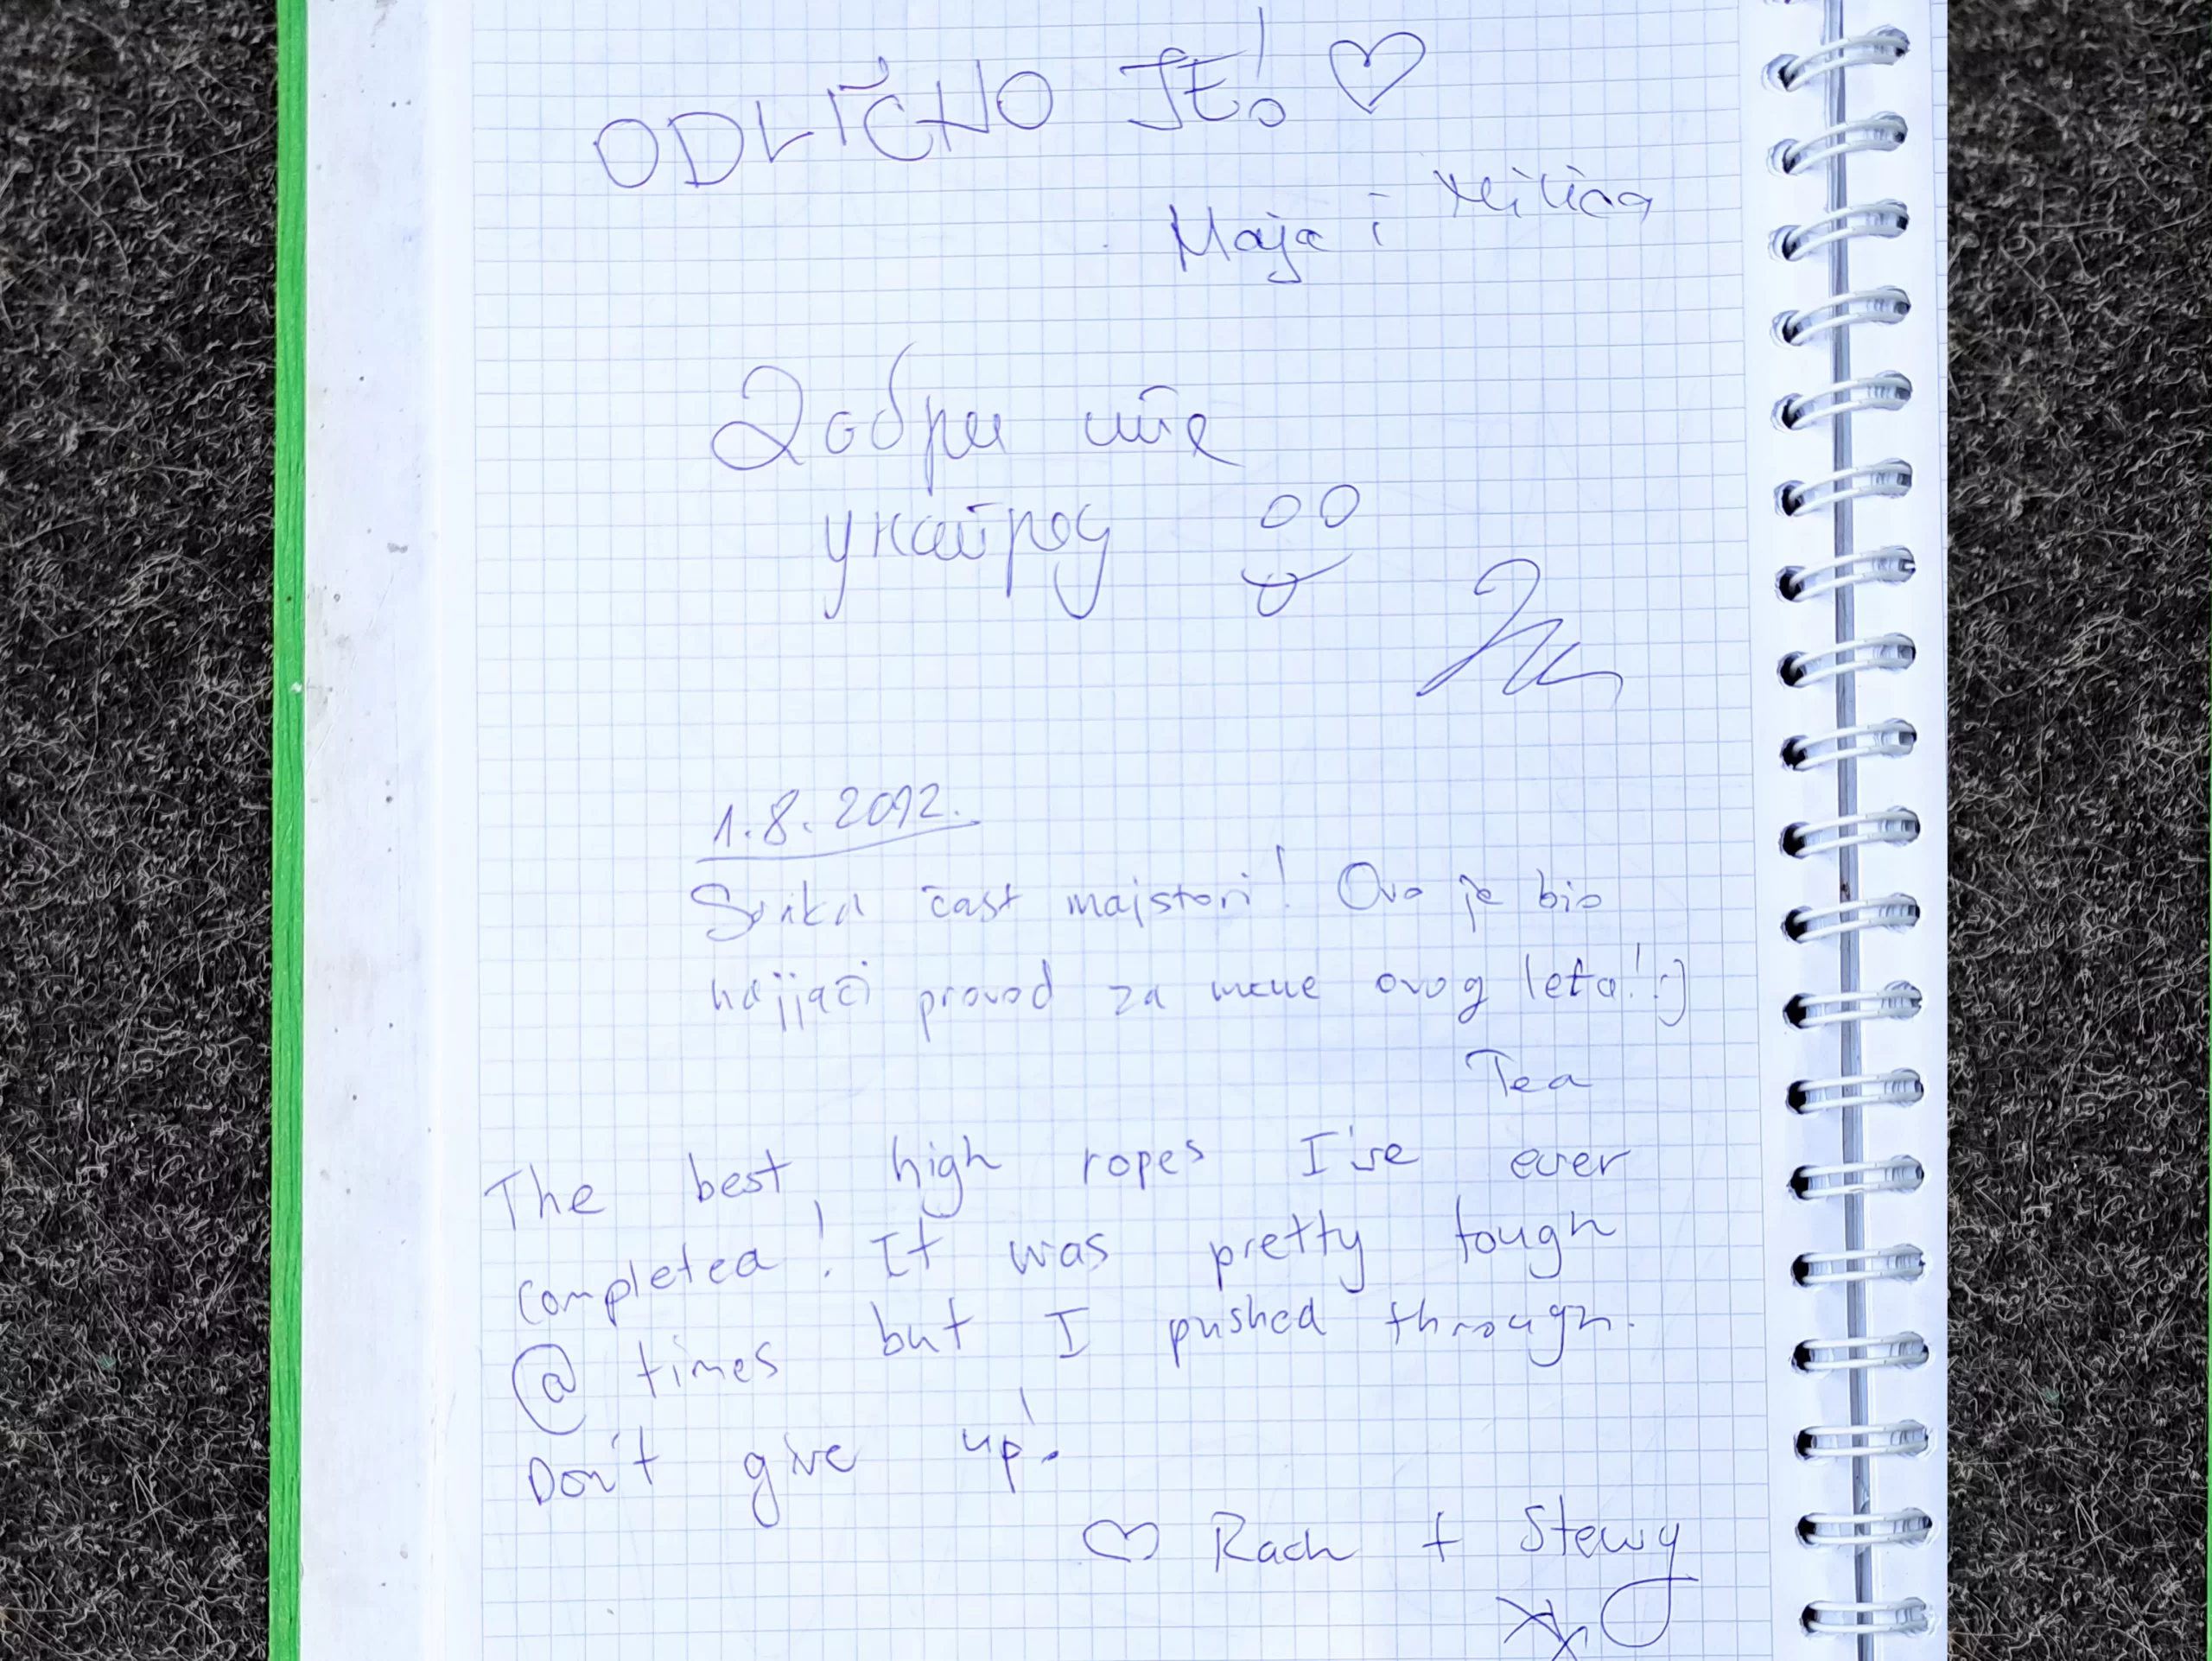 ODLIČNO JE! ♡
Maja i Milica
Добри сте
унапред
1.8.2012.
Svaka čast majstori! Ovo je bio
najjači provod za mene ovog leta! :)
Tea
The best high ropes I've ever
completed! It was pretty tough
@ times but I pushed through.
Don't give up!
♡ Rach + Stewy